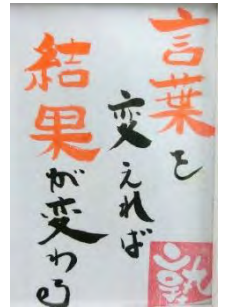 言葉を
変えれば
結果が変わる
塾